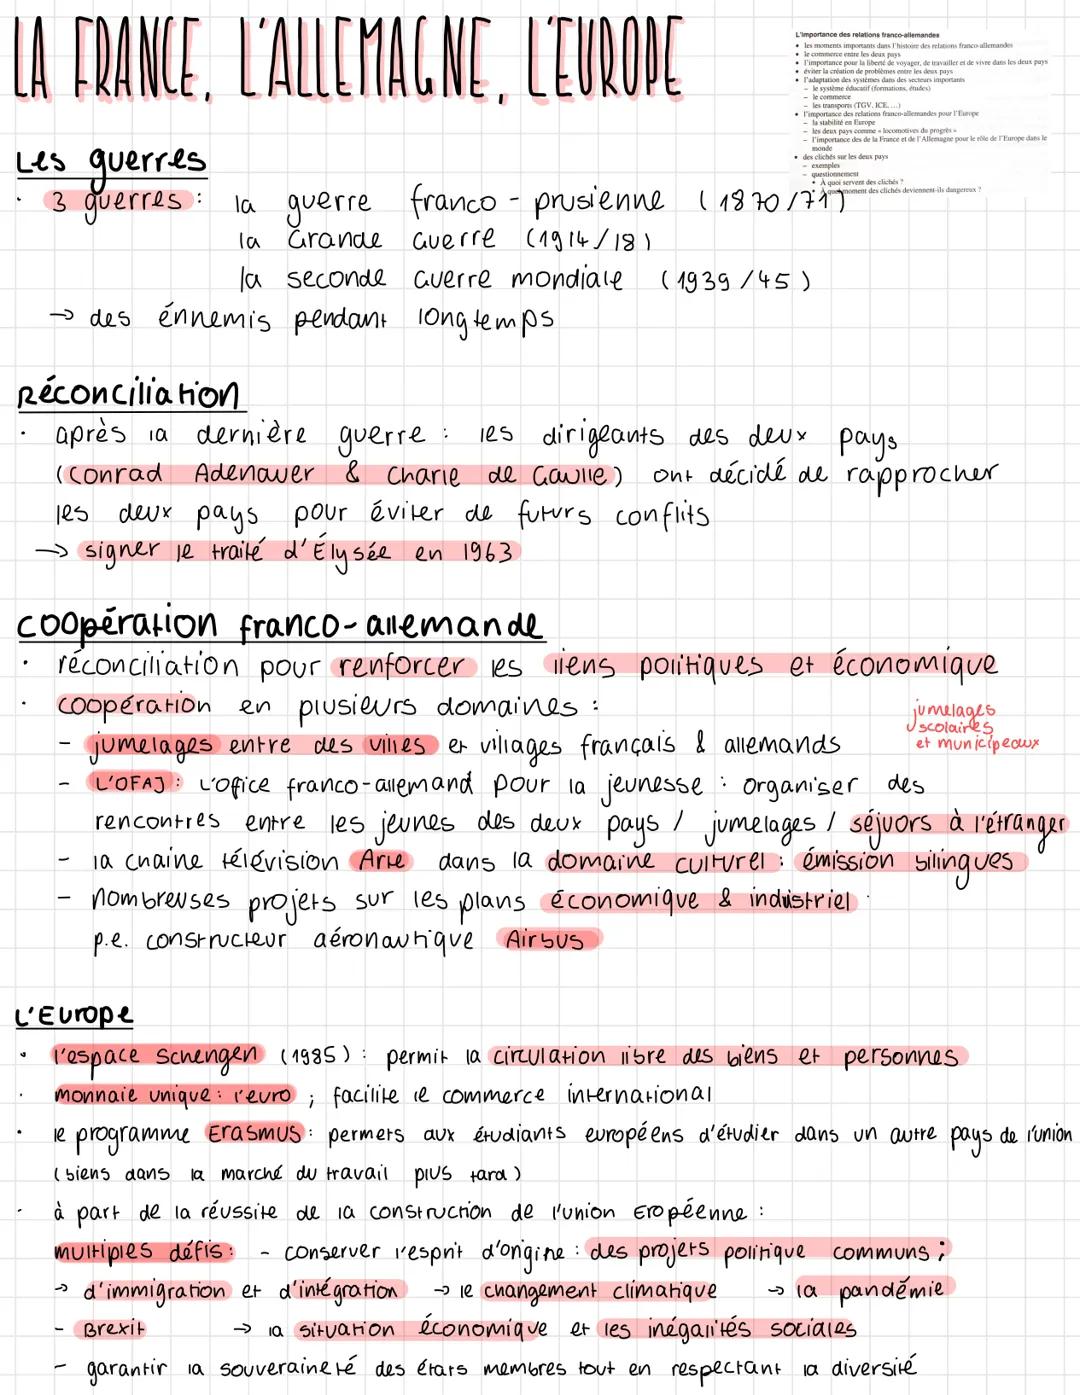 LA FRANCE, L'ALLEMAGNE, L'EUROPE
L'importance des relations franco-allemandes
• les moments importants dans l'histoire des relations franco-allemandes
• le commerce entre les deux pays
• l'importance pour la liberté de voyager, de travailler et de vivre dans les deux pays
• éviter la création de problèmes entre les deux pays
• l'adaptation des systèmes dans des secteurs importants
– le système éducatif (formations, études)
– le commerce
– les transports (TGV, ICE, ...)
• l'importance des relations franco-allemandes pour l'Europe
– la stabilité en Europe
– les deux pays comme « locomotives du progrès »
– l'importance des de la France et de l'Allemagne pour le rôle de l'Europe dans le
monde
• des clichés sur les deux pays
– exemples
– questionnement
• À quoi servent des clichés ?
• À quel moment des clichés deviennent-ils dangereux ?
Les guerres
· 3 guerres : la guerre franco - prusienne (1870/71)
la Grande Guerre (1914/18)
la seconde Guerre mondiale (1939/45)
→ des énnemis pendant longtemps
Réconciliation
· après la dernière guerre : les dirigeants des deux pays
(Conrad Adenauer & Charle de Gaulle) ont décidé de rapprocher
les deux pays pour éviter de futurs conflits
→ signer le traité d'Élysée en 1963
coopération franco-allemande
· réconciliation pour renforcer les liens politiques et économique
· coopération en plusieurs domaines :
- jumelages entre des villes et villages français & allemands
jumelages
scolaires
et municipeaux
- L'OFAJ : L'office franco-allemand pour la jeunesse : organiser des
rencontres entre les jeunes des deux pays / jumelages / séjuors à l'étranger
- la chaine télévision Arte dans la domaine culturel : émission bilingues
- nombreuses projets sur les plans économique & industriel :
p.e. constructeur aéronautique Airbus
L'Europe
· l'espace Schengen (1985) : permit la circulation libre des biens et personnes
· monnaie unique : l'euro ; facilite le commerce international
· le programme Erasmus : permets aux étudiants européens d'étudier dans un autre pays de l'union
(biens dans la marché du travail plus tard)
· à part de la réussite de la construction de l'union Eropéenne :
multiples défis : - conserver l'esprit d'origine : des projets politique communs ;
→ d'immigration et d'intégration → le changement climatique → la pandémie
- Brexit → la situation économique et les inégalités sociales
- garantir la souveraineté des états membres tout en respectant la diversité